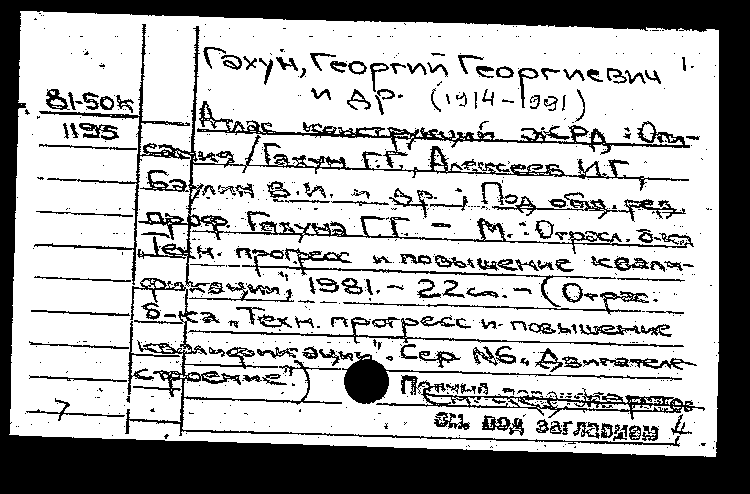 Гахун, Георгий Георгиевич 1.
и др. (1914-1991)
81-50к
1195
Атлас конструкций ЖРД : Опи-
сания / Гахун Г.Г., Алексеев И.Г.,
Баулин В.И. и др ; Под общ. ред.
проф Гахуна Г.Г. - М. : Отрасл. б-ка
„Техн. прогресс и повышение квали-
фикации", 1981. - 22 см. - (Отрас.
б-ка „Техн. прогресс и повышение
квалификации". Сер №6. Двигателе-
строение")
Полный
7
см. под заглавием 4